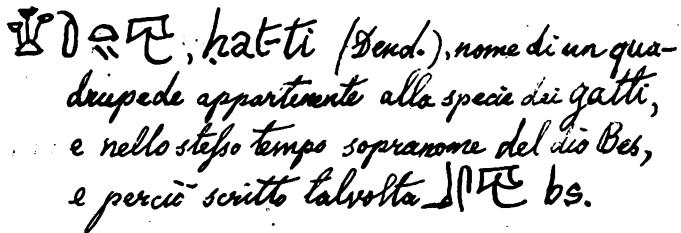 , ḥat-ti (Dend.), nome di un qua-
drupede appartenente alla specie dei gatti,
e nello stesso tempo sopranome del dio Bes,
e perciò scritto talvolta 𓃀𓋴𓄛 bs.